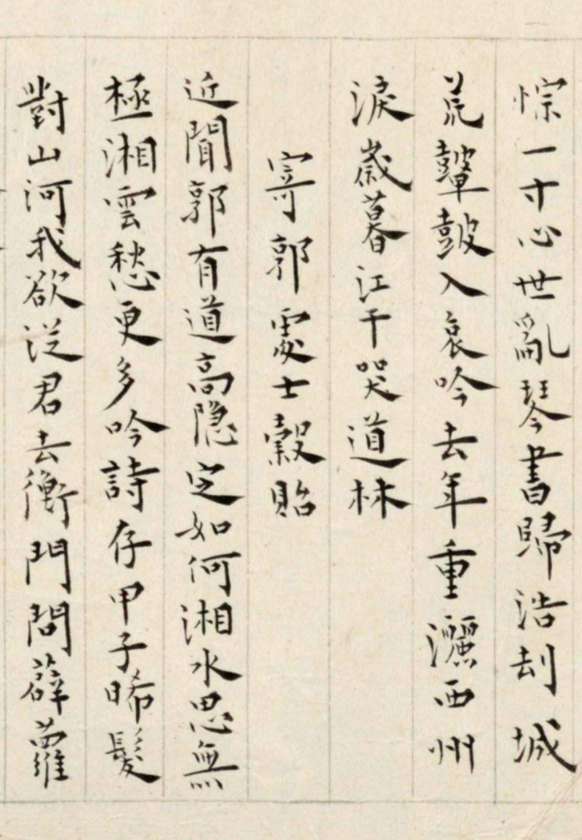 悰一寸心世亂琴書歸浩刦城
荒鼙鼓入哀吟去年重灑西州
淚歲暮江干哭道林
寄郭處士穀貽
近聞郭有道高隱定如何湘水思無
極湘雲愁更多吟詩存甲子晞髮
對山河我欲從君去衡門問薜蘿